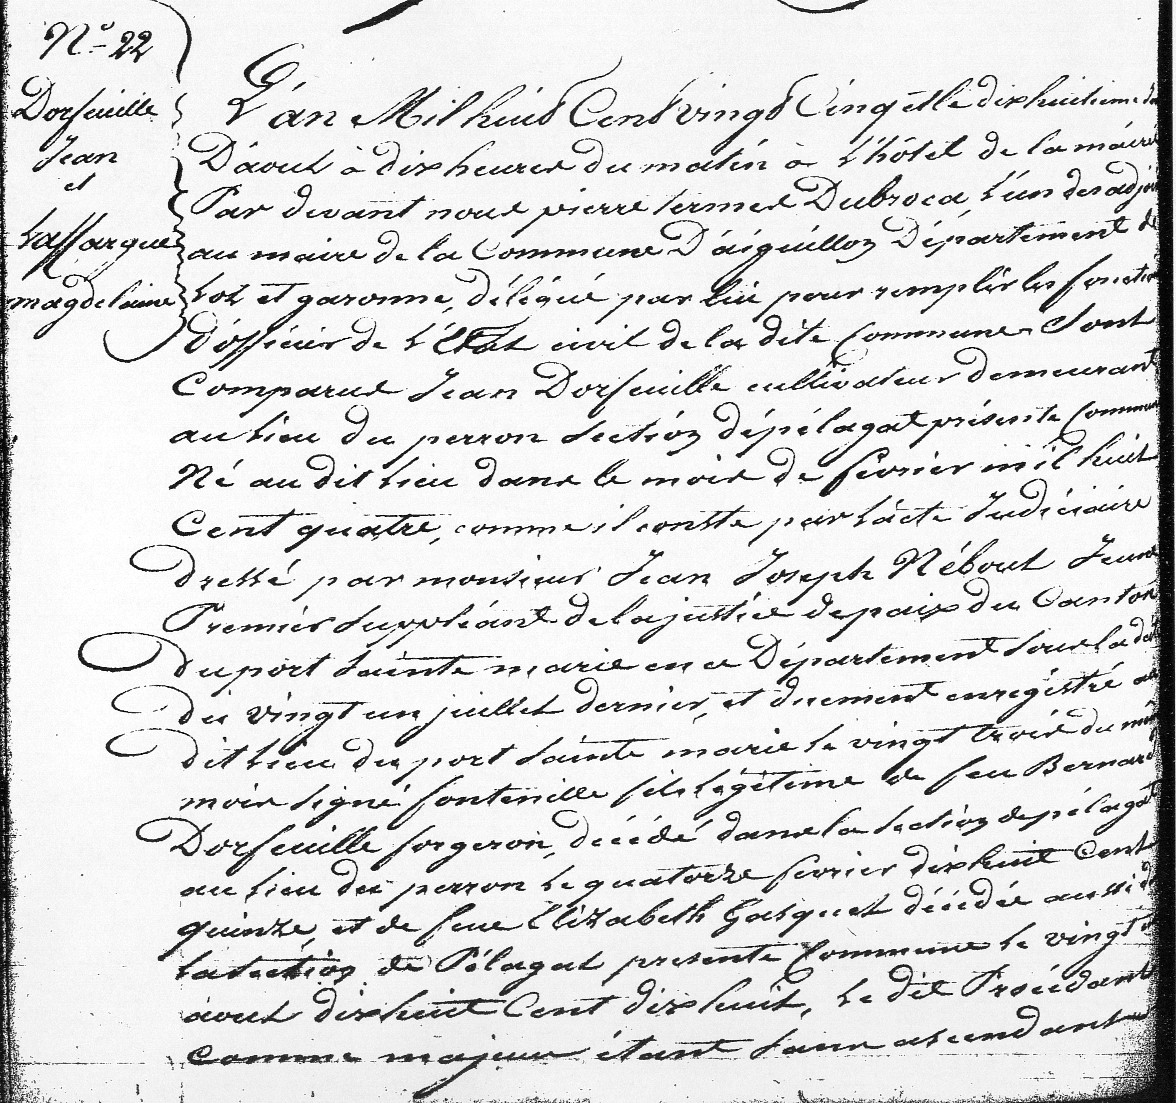 N.º 22
Dorfeuille
Jean
et
Laffargue
magdelaine
L'an Mil huit Cent vingt Cinq et le dixhuitieme
D'aout à dix heures du matin à L'hôtel de la mairie
Par devant nous pierre termes Dubroca, L'un des adjoi
au maire de la Commune D'aiguillon Département de
Lot et garonne, délégué par lui pour remplir les fonction
d'officier de L'Etat civil de la dite Commune Sont
Comparus Jean Dorfeuille cultivateur demeurant
au Lieu du perron Section dépélagat présente Commune
Né au dit Lieu dans le mois de fevrier mil huit
Cent quatre, comme il conste par L'acte Judiciaire
dressé par monsieur Jean Joseph Nébout Jeune
Premier Suppléant de la justice de paix du Canton
du port Sainte marie en ce Département Sous la date
du vingt un juillet dernier, et duement enregistré au
dit Lieu du port Sainte marie le vingt trois du mê
mois Signé fontenille fils Légitime de feu Bernard
Dorfeuille forgeron, décédé dans la Section de pélagat
au Lieu du perron Le quatorze fevrier dixhuit Cent
quinze, et de feue Elizabeth Gasquet décédée aussi d
La Section de Pélagat presente Commune Le vingt
aout dixhuit Cent dixhuit, Le dit Procédant
comme majeur étant Sans ascendant